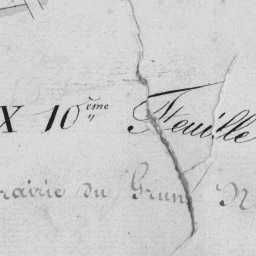 X 10ème Feuille
rairie du Grund N